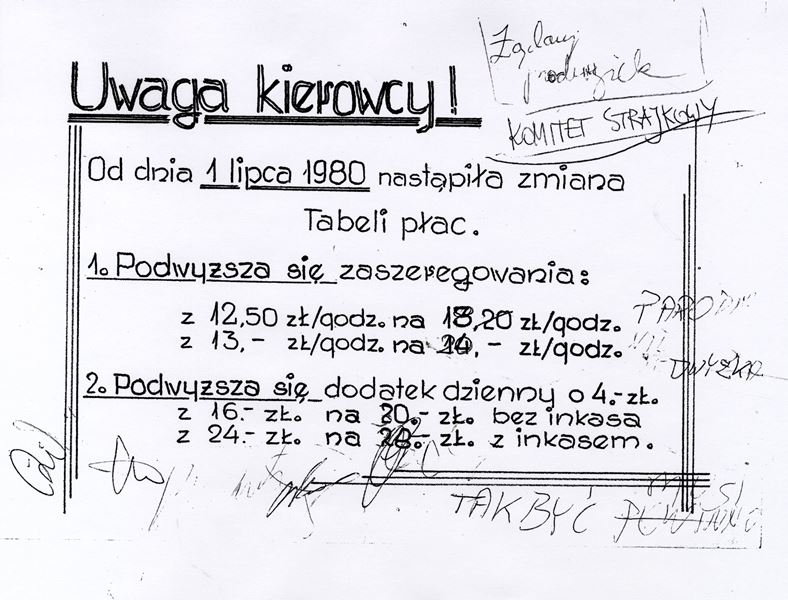 Żądamy
podwyżek
KOMITET STRAJKOWY
Uwaga kierowcy!
Od dnia 1 lipca 1980 nastąpiła zmiana
Tabeli płac.
1. Podwyższa się zaszeregowania:
z 12,50 zł/godz. na 18,20 zł/godz.
z 13,- zł/godz. na 24,- zł/godz.
2. Podwyższa się dodatek dzienny o 4.- zł.
z 16.- zł. na 20.- zł. bez inkasa
z 24.- zł. na 28.- zł. z inkasem.
TAK BYĆ MUSI
POWINNO